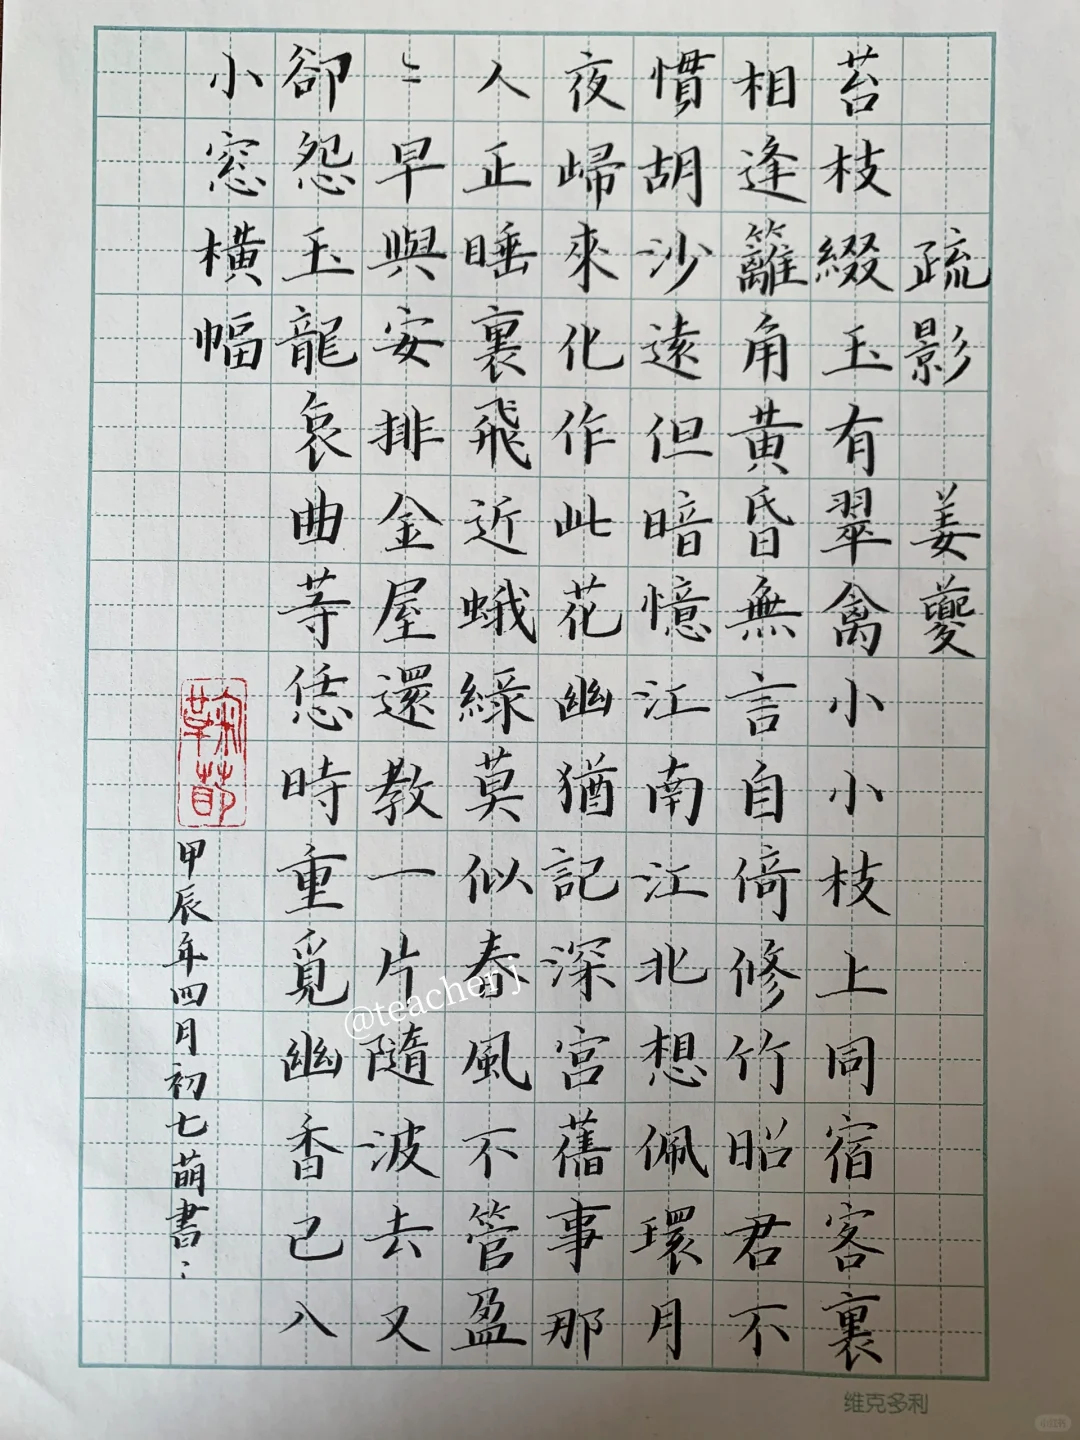 疏影 姜夔
苔枝綴玉有翠禽小小枝上同宿客裏
相逢籬角黃昏無言自倚修竹昭君不
慣胡沙遠但暗憶江南江北想佩環月
夜歸來化作此花幽獨記深宮舊事那
人正睡裏飛近蛾綠莫似春風不管盈
〻早與安排金屋還教一片隨波去又
卻怨玉龍哀曲等恁時重覓幽香已入
小窓橫幅
甲辰年四月初七萌書〻
@teacherj
维克多利
小红书